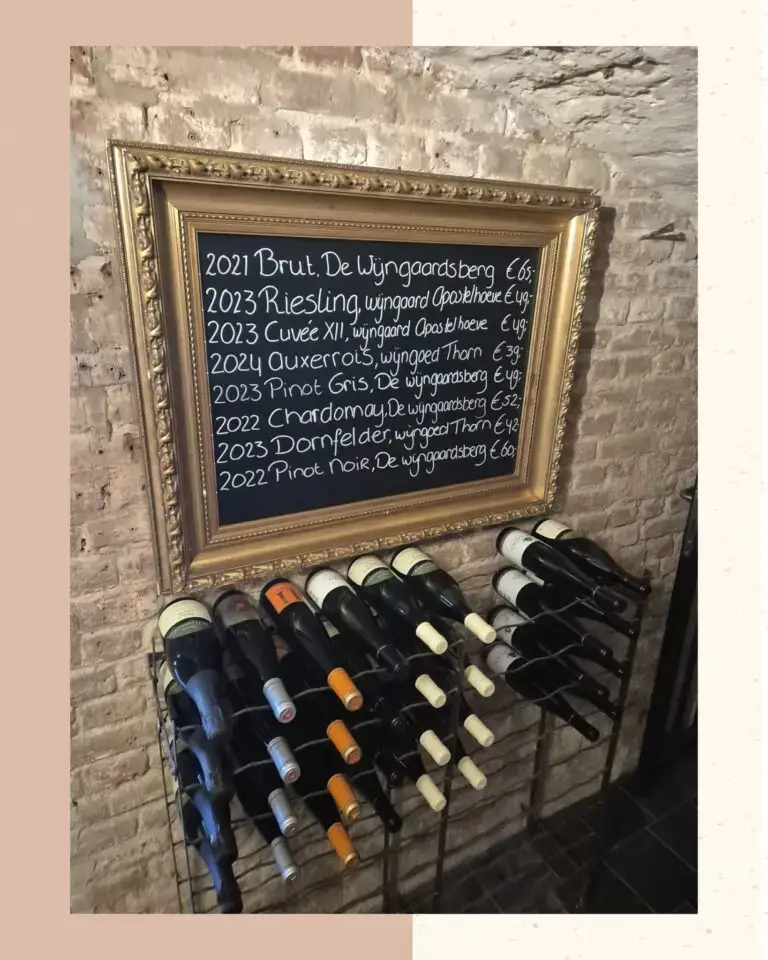 2021 Brut, De Wijngaardsberg €65,-
2023 Riesling, wijngaard Apostelhoeve €49,-
2023 Cuvée XII, wijngaard Apostelhoeve €49,-
2024 Auxerrois, wijngoed Thorn €39,-
2023 Pinot Gris, De wijngaardsberg €49,-
2022 Chardonnay, De wijngaardsberg €52,-
2023 Dornfelder, wijngoed Thorn €42,-
2022 Pinot Noir, De wijngaardsberg €60,-